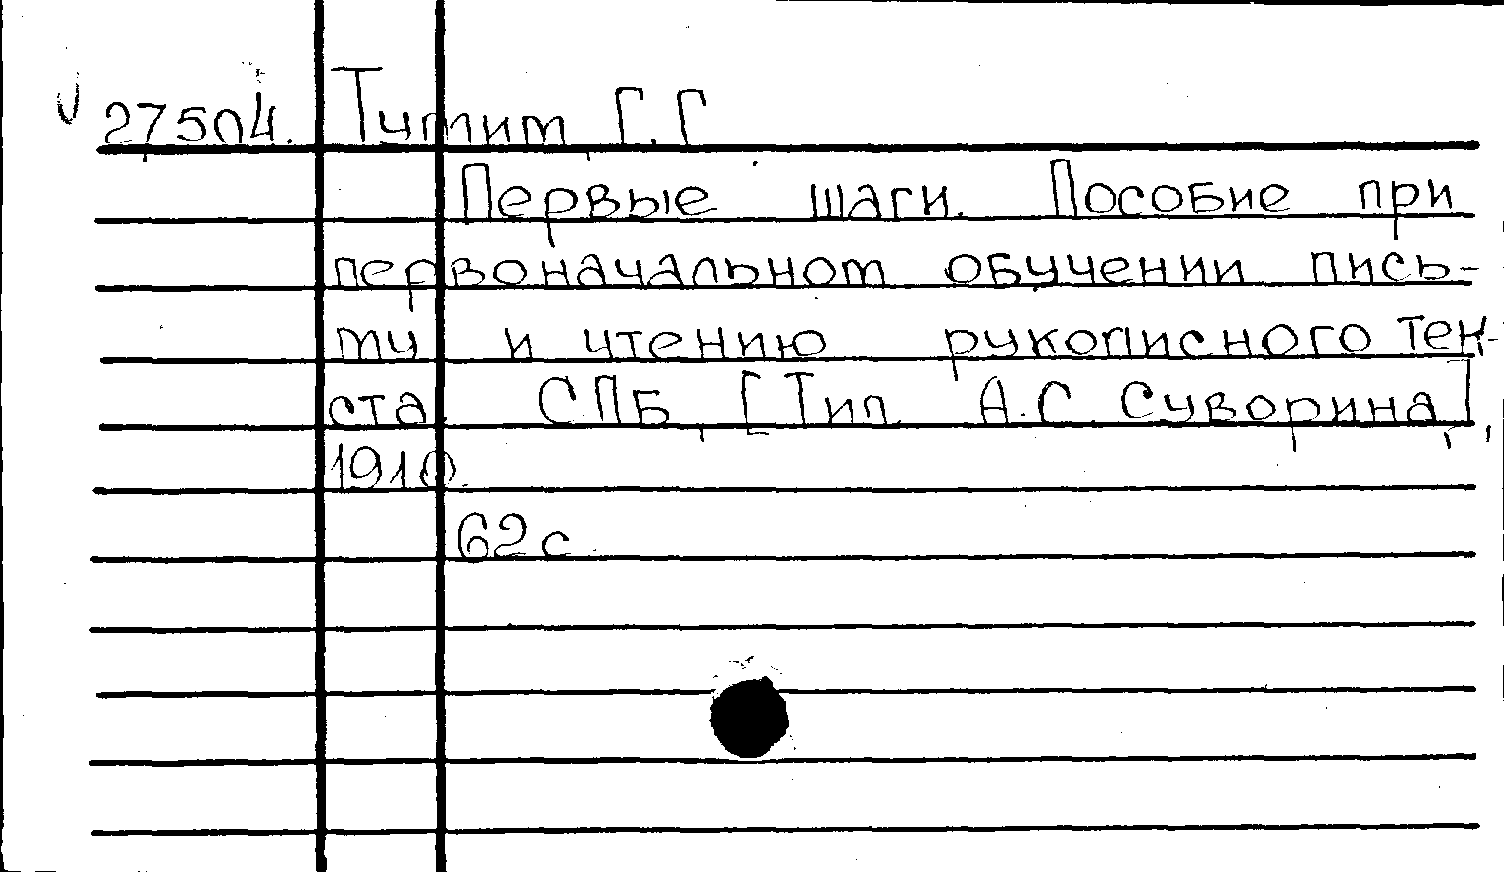 27504. Тумим, Г.Г
Первые шаги. Пособие при
первоначальном обучении пись-
му и чтению рукописного тек-
ста. СПБ, [Тип. А.С Суворина],
1910.
62 с.